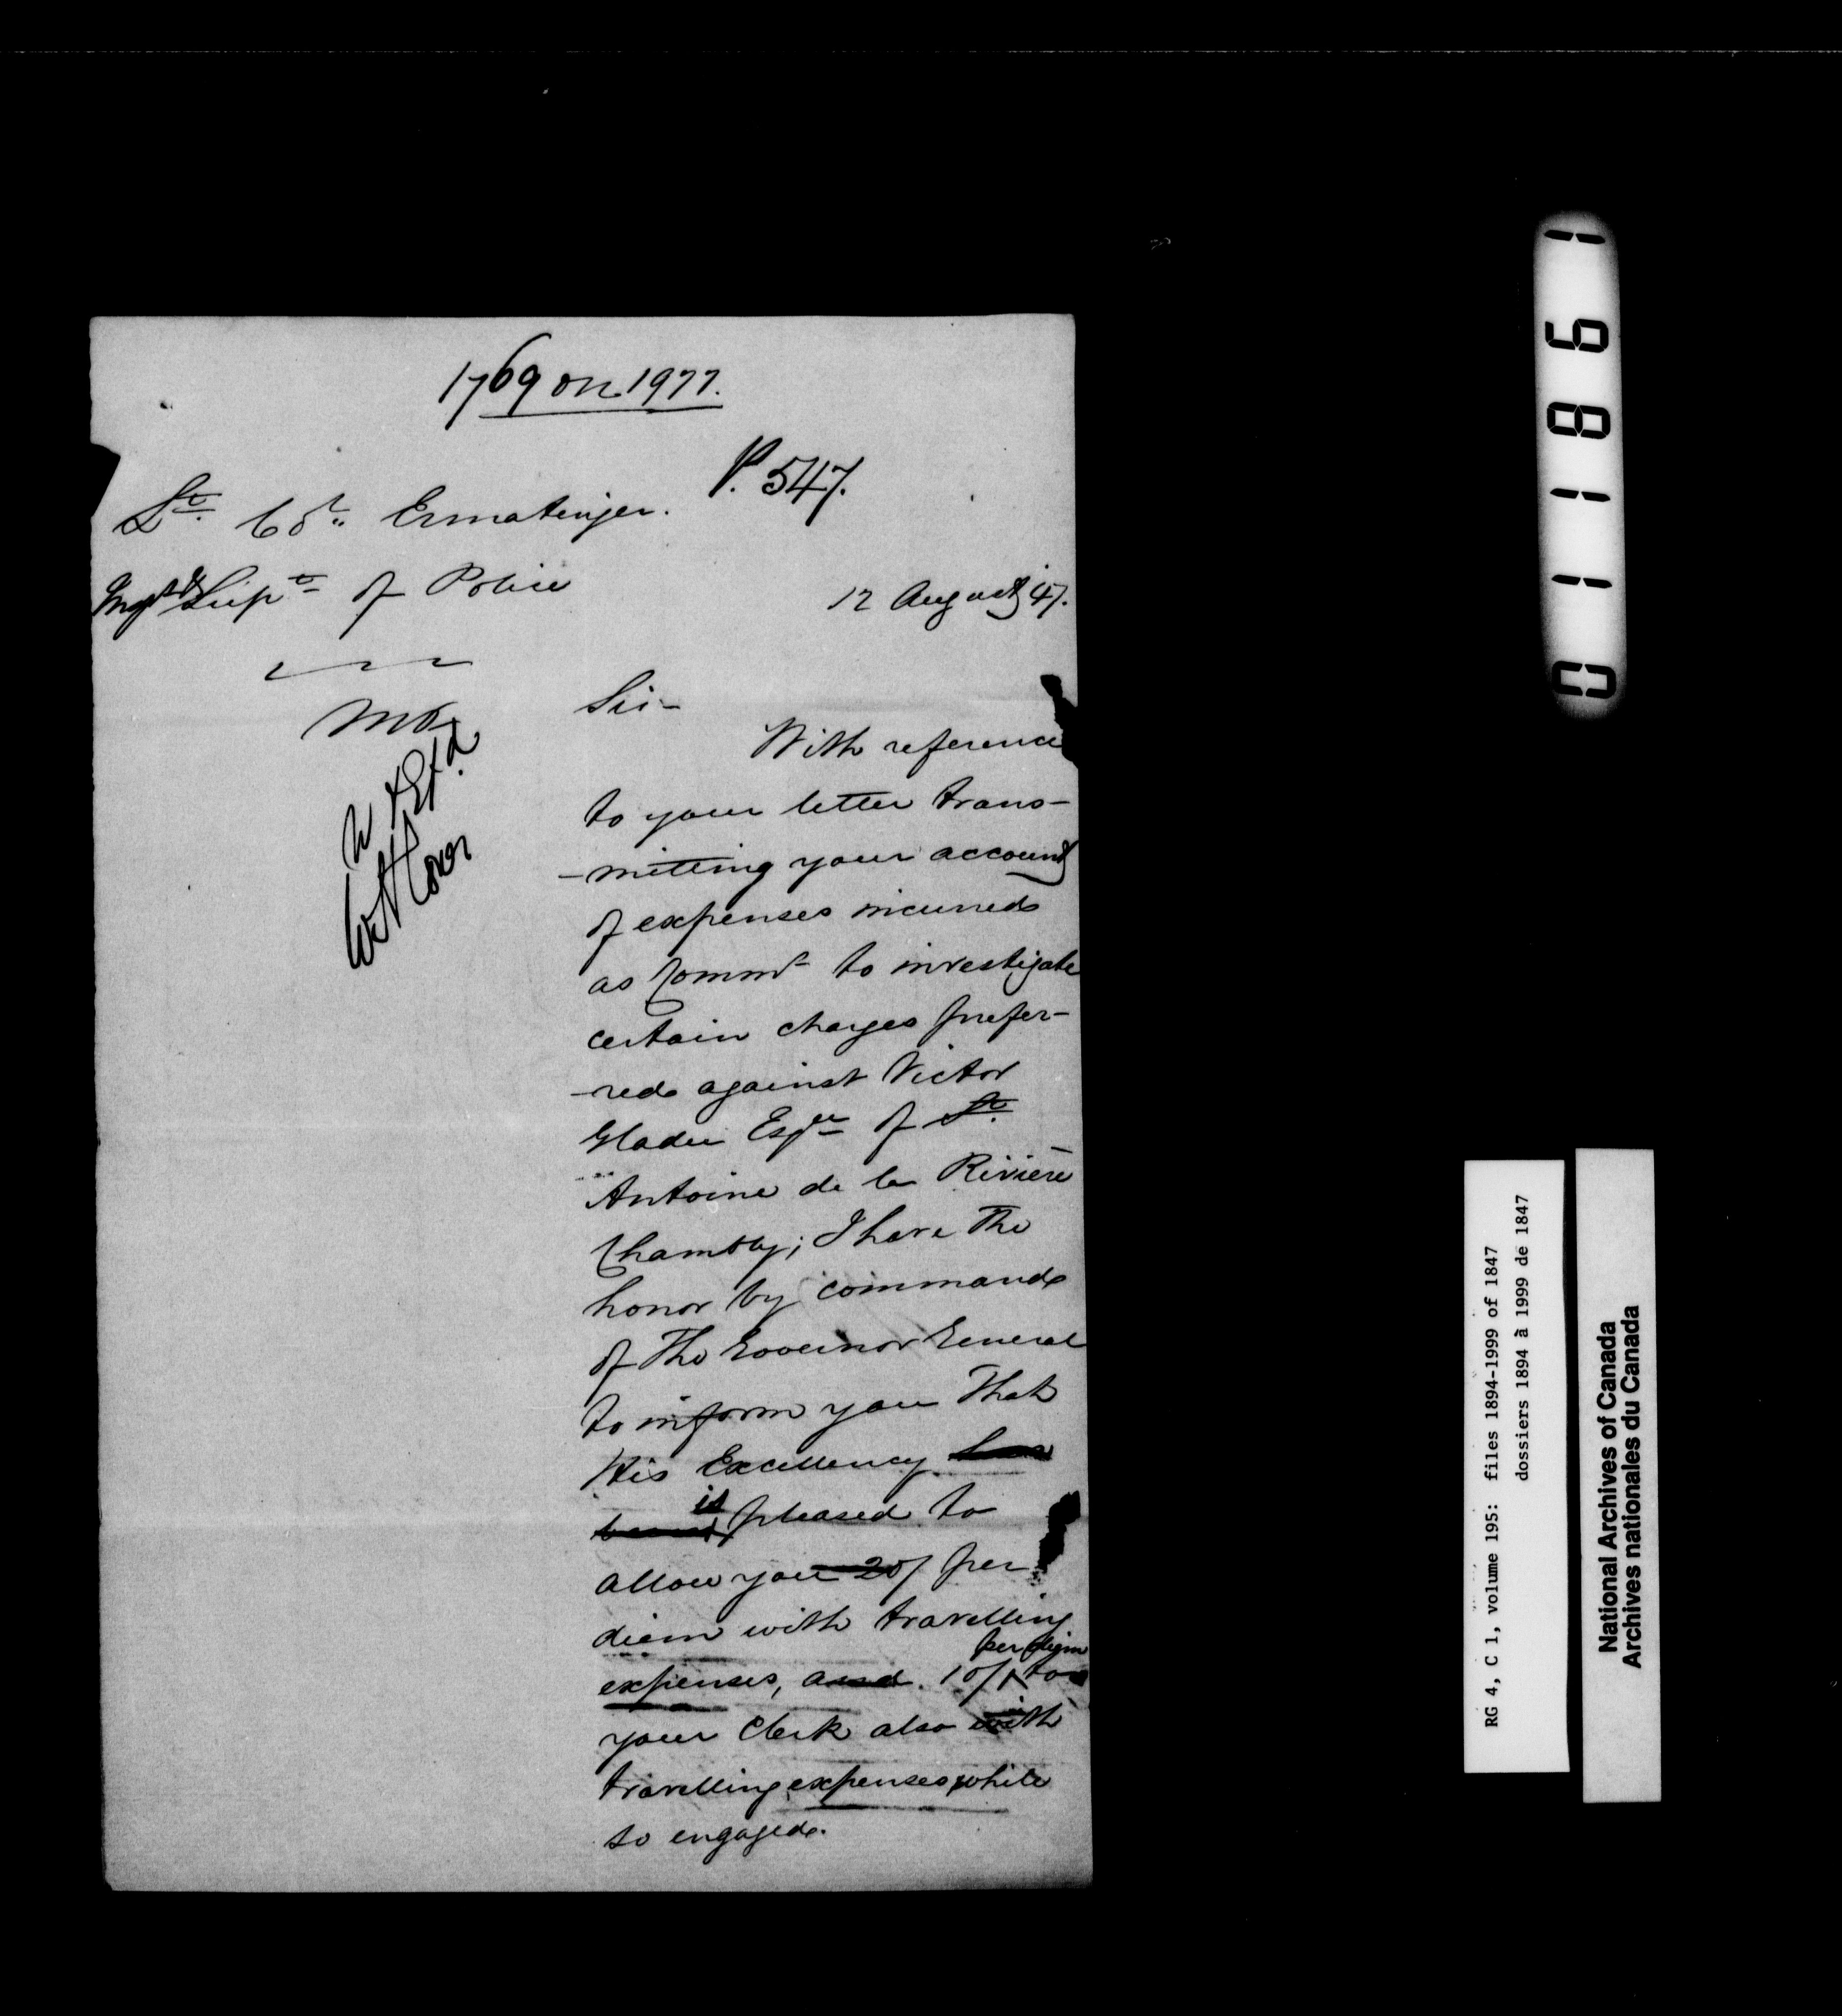 1769 on 1977.
P. 547.
Lt. Col. Ermatinger.
Insp. & Supt. of Police
12 August 47.
Sir-
With reference
to your letter trans-
-mitting your account
of expenses incurred
as Commr to investigate
certain charges prefer-
-red against Victor
Gladu Esqr of St.
Antoine de la Rivière
Chambly; I have the
honor by command
of The Governor General
to inform you That
His Excellency has
been is pleased to
allow you 20/ per
diem with travelling
expenses, and 10/ per diem to
your Clerk also with
travelling expenses, while
so engaged.
011861
RG 4, C 1, volume 195: files 1894-1999 of 1847
dossiers 1894 à 1999 de 1847
National Archives of Canada
Archives nationales du Canada